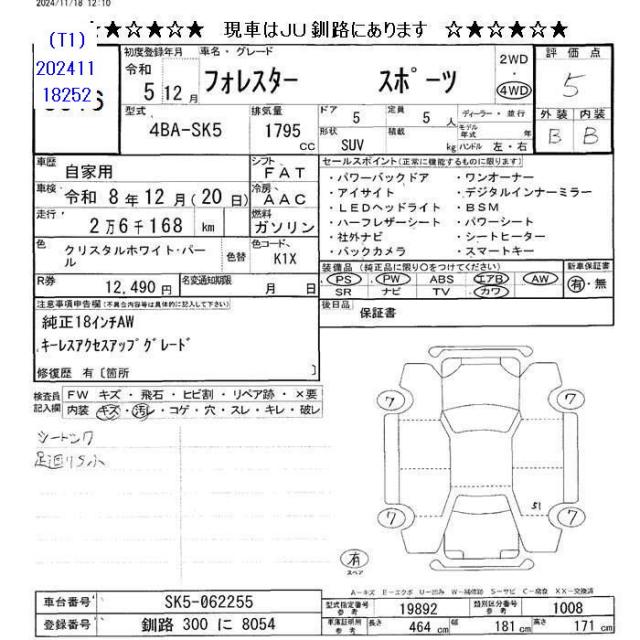 2024/11/18 12:10
★☆★☆★★ 現車はJU釧路にあります ☆★☆★☆★
(T1)
202411
18252
初度登録年月 車名・グレード
令和
5 12月
フォレスター スポーツ
2WD
・
4WD
評価点
5
外装 内装
B B
型式
4BA-SK5
排気量
1795
cc
ドア 5
定員 5 人
ディーラー・並行
モデル年式 年
形状
SUV
積載
kg
ハンドル 左・右
車歴
自家用
シフト
FAT
車検
令和 8年12月(20日)
冷房
AAC
走行
2万6千168 km
燃料
ガソリン
色
クリスタルホワイト・パール
色替
色コード
K1X
R券
12,490円
名変通知期限
月 日
セールスポイント(正常に機能するものに限ります)
・パワーバックドア ・ワンオーナー
・アイサイト ・デジタルインナーミラー
・LEDヘッドライト ・BSM
・ハーフレザーシート ・パワーシート
・社外ナビ ・シートヒーター
・バックカメラ ・スマートキー
装備品 (純正品に限り○をつけてください)
PS PW ABS エアB AW
SR ナビ TV カワ
新車保証書
有・無
後日品
保証書
注意事項申告欄(不具合内容等は具体的に記入して下さい)
純正18インチAW
キーレスアクセスアップグレード
修復歴 有〔箇所 〕
検査員記入欄
FW キズ・飛石・ヒビ割・リペア跡・×要
内装 キズ・汚レ・コゲ・穴・スレ・キレ・破レ
シートシワ
足廻りサふ
7
7
7
7
S1
有
スペア
A-キズ E-エクボ U-凹み W-補修跡 S-サビ C-腐食 XX-交換済
車台番号
SK5-062255
登録番号
釧路 300 に 8054
型式指定番号
参考
19892
類別区分番号
参考
1008
車庫証明用
参考
長さ 464 cm
幅 181 cm
高さ 171 cm